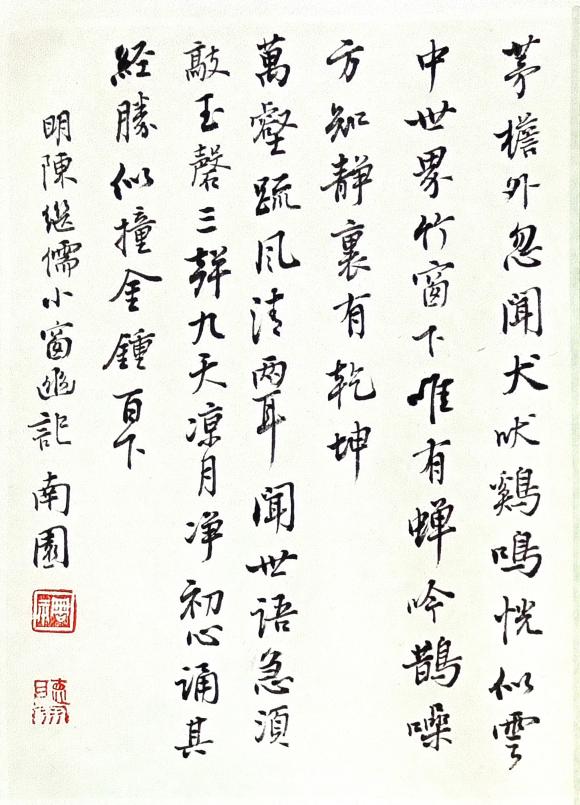 茅檐外忽聞犬吠鷄鳴恍似雲
中世界竹窗下唯有蝉吟鵲噪
方知靜裏有乾坤
萬壑疏風清兩耳聞世語急須
敲玉磬三聲九天凉月净初心誦其
經勝似撞金鍾百下
明陳継儒小窗幽記 南園